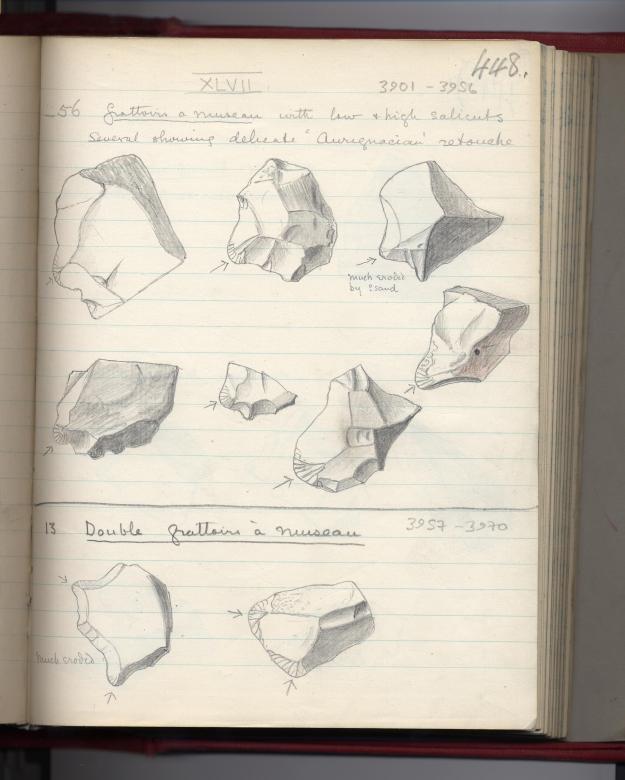 448.
XLVII 3901 - 3956
56 grattoirs a museau with low & high salients
several showing delicate "Aurignacian" retouche
much eroded
by ?sand
13 Double grattoirs à museau 3957 - 3970
much eroded